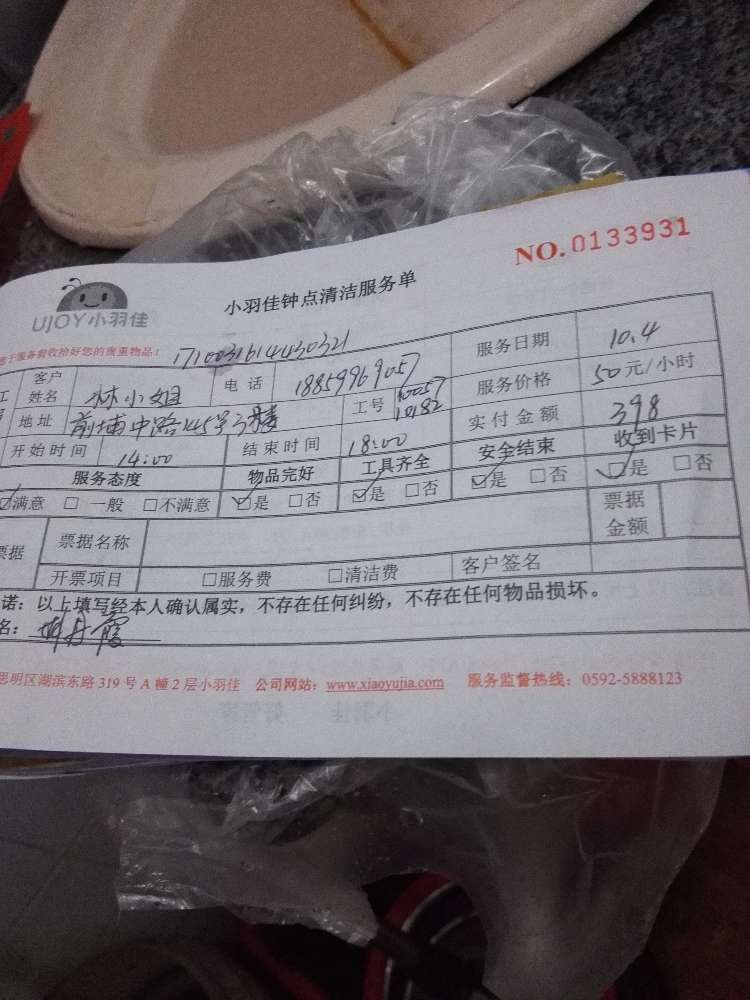 NO.0133931
UJOY小羽佳
小羽佳钟点清洁服务单
于服务前收拾好您的贵重物品! 171003161443032​1
客户姓名 林小姐 电话 18859969057 服务日期 10.4
地址 前埔中路145号 工号 10057 10182 服务价格 50元/小时
开始时间 14:00 结束时间 18:00 实付金额 398
服务态度 物品完好 工具齐全 安全结束 收到卡片
☑满意 □一般 □不满意 ☑是 □否 ☑是 □否 ☑是 □否 ☑是 □否
票据 票据名称 票据金额
开票项目 □服务费 □清洁费 客户签名
诺：以上填写经本人确认属实，不存在任何纠纷，不存在任何物品损坏。
名：
思明区湖滨东路319号A幢2层小羽佳 公司网站：www.xiaoyujia.com 服务监督热线：0592-5888123